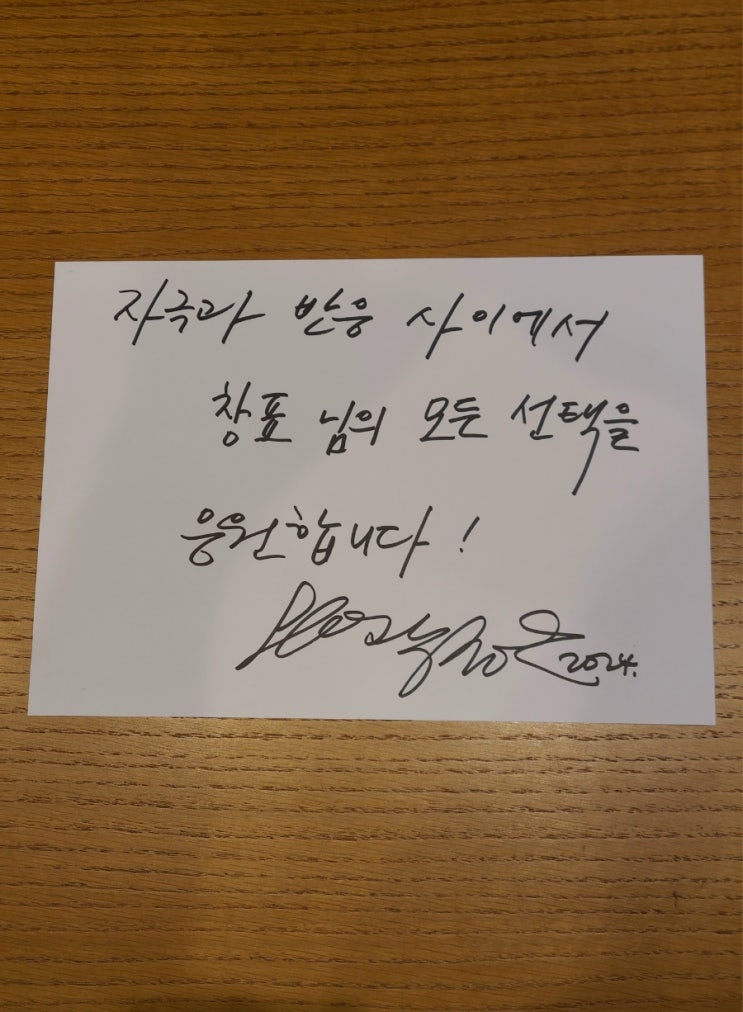 자극과 반응 사이에서
창표 님의 모든 선택을
응원합니다!
2024.